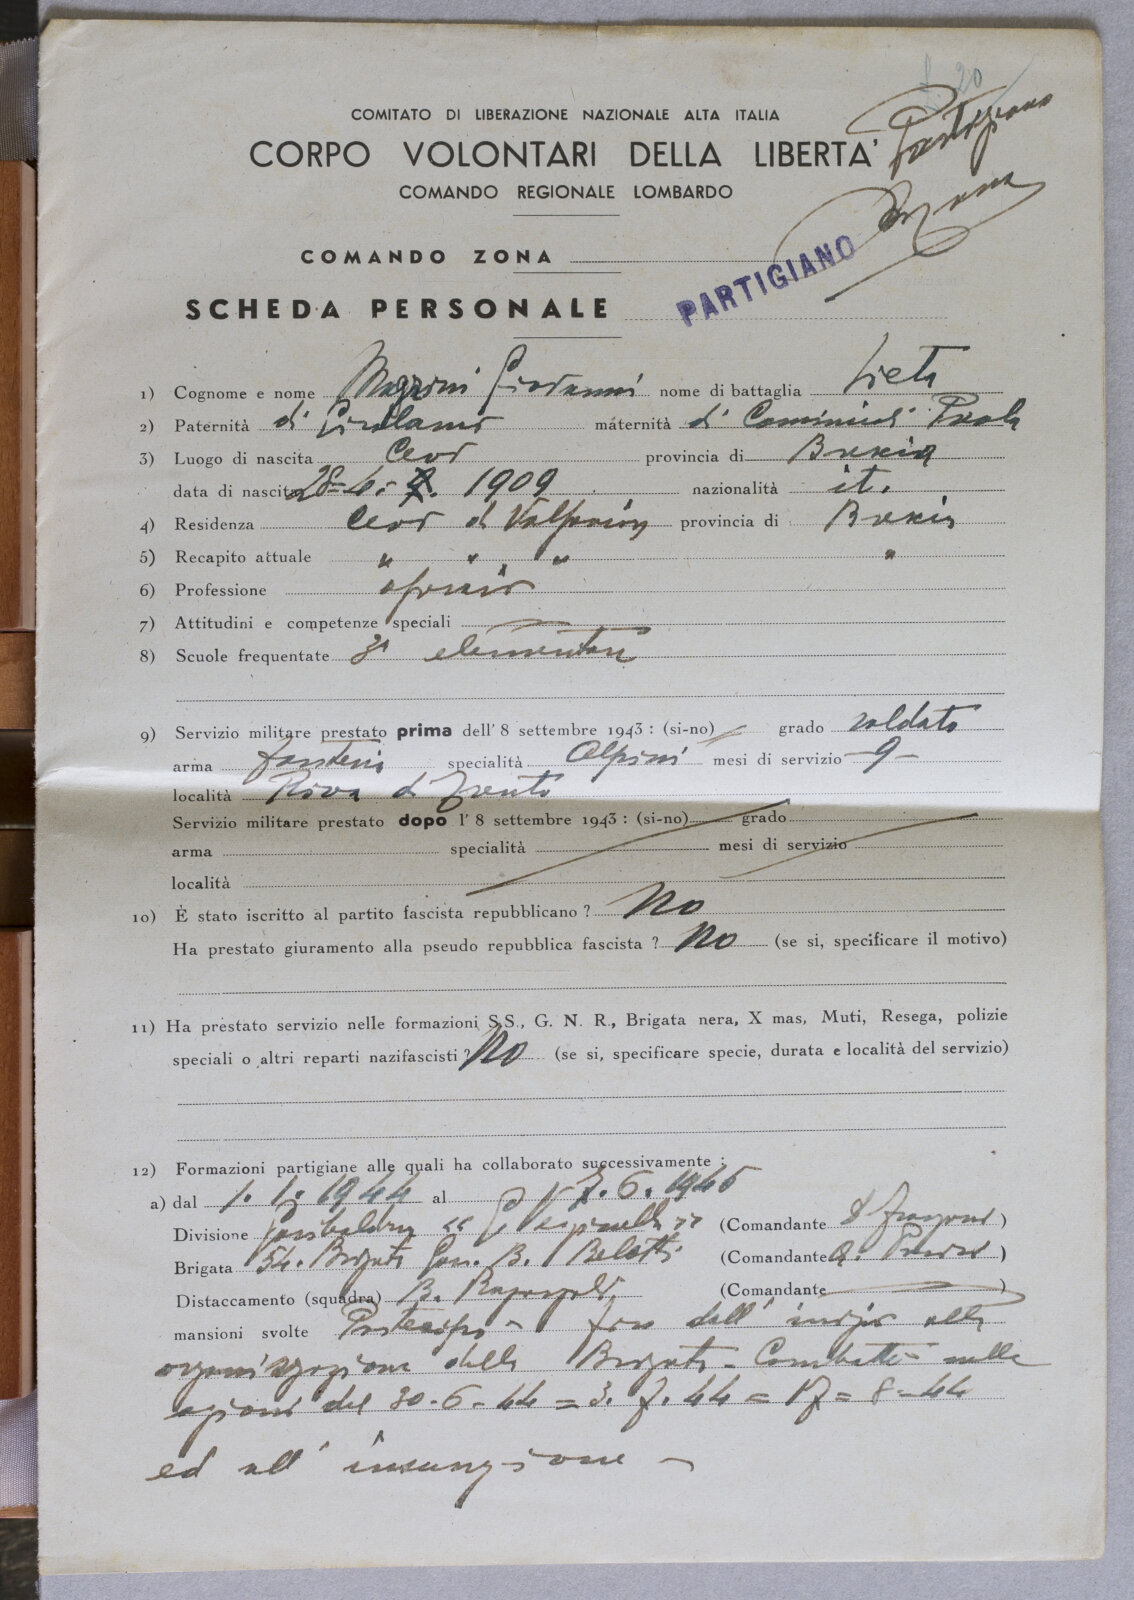 20
Partigiano
COMITATO DI LIBERAZIONE NAZIONALE ALTA ITALIA
CORPO VOLONTARI DELLA LIBERTA'
COMANDO REGIONALE LOMBARDO
COMANDO ZONA
PARTIGIANO
SCHEDA PERSONALE
1) Cognome e nome Giovanni nome di battaglia
2) Paternità di Girolamo maternità di Paola
3) Luogo di nascita Cevo provincia di Brescia
data di nascita 28-4- 1909 nazionalità it.
4) Residenza Cevo di Valsaviore provincia di Brescia
5) Recapito attuale " " " "
6) Professione operaio
7) Attitudini e competenze speciali —
8) Scuole frequentate 3ª elementare
9) Servizio militare prestato prima dell' 8 settembre 1943 : (si-no) – grado soldato
arma fanteria specialità Alpini mesi di servizio -9-
località Riva di Trento
Servizio militare prestato dopo l' 8 settembre 1943 : (si-no) grado
arma specialità mesi di servizio
località
10) È stato iscritto al partito fascista repubblicano ? No
Ha prestato giuramento alla pseudo repubblica fascista ? No (se si, specificare il motivo)
11) Ha prestato servizio nelle formazioni S.S., G. N. R., Brigata nera, X mas, Muti, Resega, polizie
speciali o altri reparti nazifascisti ? No (se si, specificare specie, durata e località del servizio)
12) Formazioni partigiane alle quali ha collaborato successivamente :
a) dal 1. 1944 al 7. 6. 1945
Divisione Garibaldina (Comandante )
Brigata 54. Brigata Gar. B. Belotti (Comandante )
Distaccamento (squadra) B. (Comandante — )
mansioni svolte Partecipò - fin dall' inizio alla
organizzazione della Brigata - Combatté - nelle
azioni del 30-6-44 = 3. 7. 44 = 17 = 8-44
ed all' insurrezione -